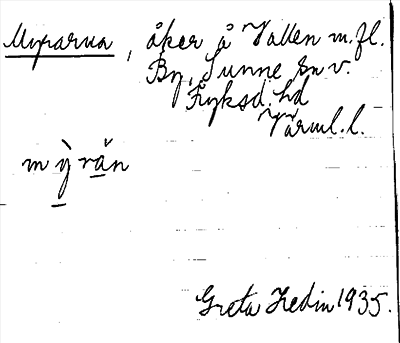 Myrarna, åker å Vallen m.fl.
By, Sunne sn v.
Fryksd. hd
Värml. l.
m ỳ rän
Greta Hedin 1935.